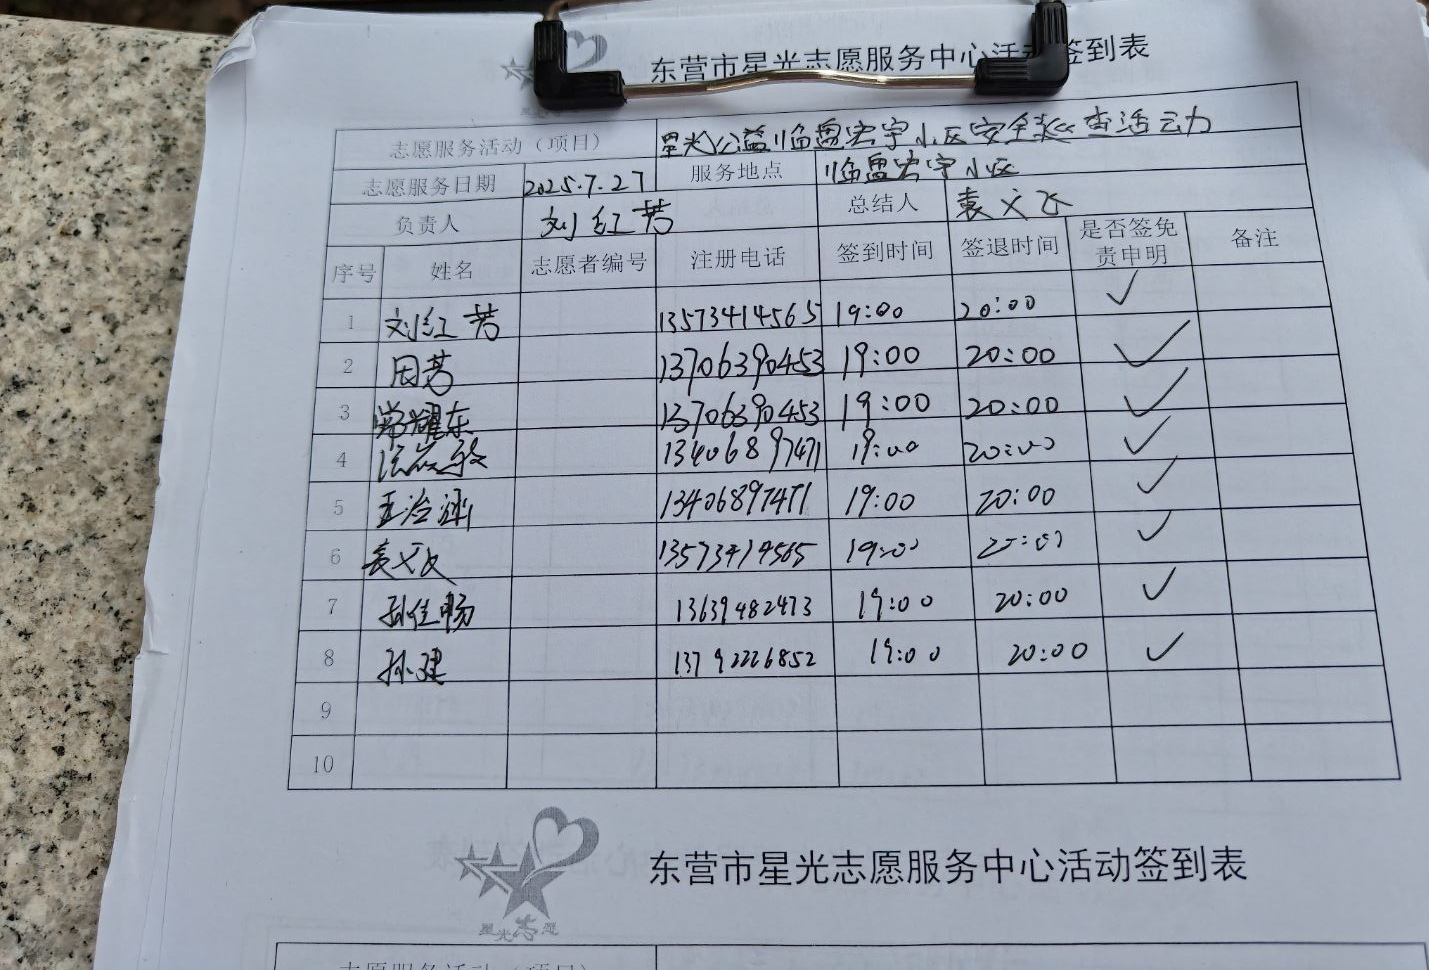 东营市星光志愿服务中心活动签到表
志愿服务活动（项目） 星光公益临盘宏宇小区安全检查活动
志愿服务日期 2025.7.27 服务地点 临盘宏宇小区
负责人 刘红芳 总结人 袁义飞
序号 姓名 志愿者编号 注册电话 签到时间 签退时间 是否签免责申明 备注
1 刘红芳 13573414565 19:00 20:00 ✓
2 田芳 13706390453 19:00 20:00 ✓
3 常耀东 13706390453 19:00 20:00 ✓
4 13406897471 19:00 20:00 ✓
5 13406897471 19:00 20:00 ✓
6 袁义飞 13573414565 19:00 20:00 ✓
7 孙佳畅 13639482473 19:00 20:00 ✓
8 孙建 13792226852 19:00 20:00 ✓
9
10
星光志愿
东营市星光志愿服务中心活动签到表
志愿服务活动（项目）